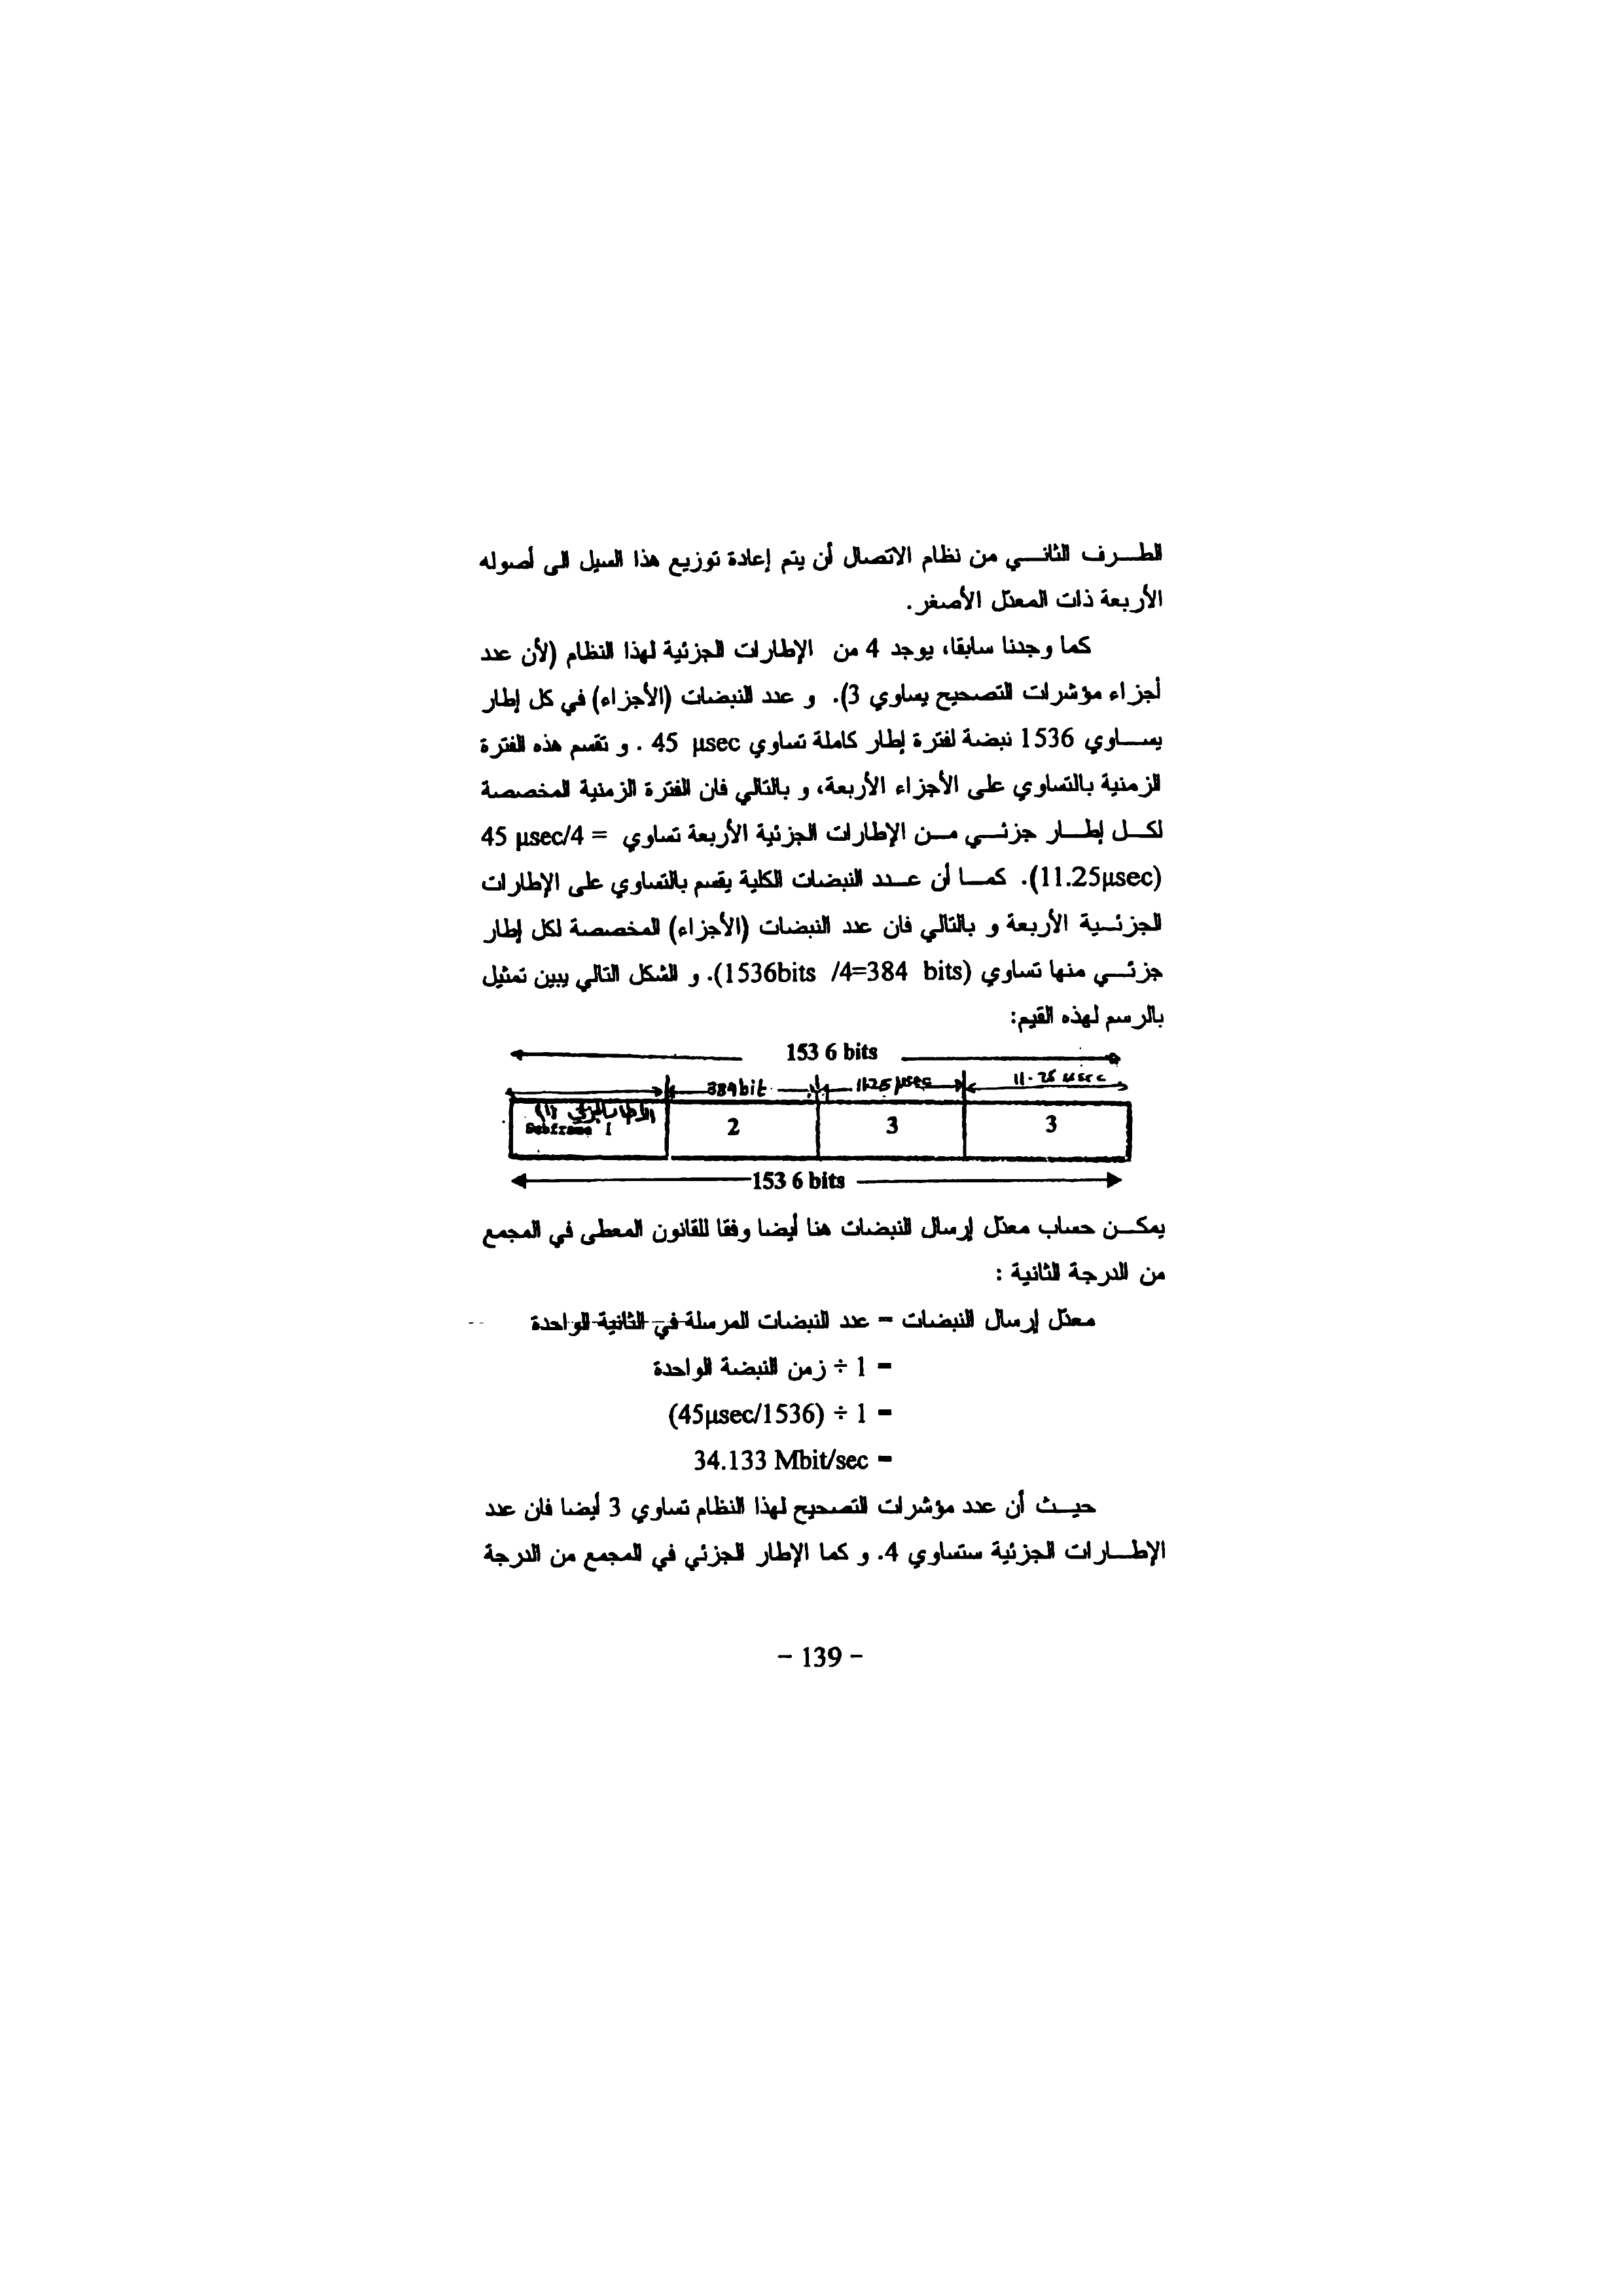 الطرف الثاني من نظام الاتصال أن يتم إعادة توزيع هذا السيل الى أصوله
الأربعة ذات المعدّل الأصغر.
كما وجدنا سابقا، يوجد 4 من الإطارات الجزئية لهذا النظام (لأن عدد
أجزاء مؤشرات التصحيح يساوي 3). و عدد النبضات (الأجزاء) في كل إطار
يساوي 1536 نبضة لفترة إطار كاملة تساوي 45 µsec . و تقسم هذه الفترة
الزمنية بالتساوي على الأجزاء الأربعة، و بالتالي فان الفترة الزمنية المخصصة
لكل إطار جزئي من الإطارات الجزئية الأربعة تساوي = 45 µsec/4
(11.25µsec). كما أن عدد النبضات الكلية يقسم بالتساوي على الإطارات
الجزئية الأربعة و بالتالي فان عدد النبضات (الأجزاء) المخصصة لكل إطار
جزئي منها تساوي (1536bits /4=384 bits). و الشكل التالي يبين تمثيل
بالرسم لهذه القيم:
153 6 bits
384bit 11.25 µsec 11.25 µsec
الاطار الجزئي (1)
Subframe 1 2 3 3
153 6 bits
يمكن حساب معدّل إرسال النبضات هنا أيضا وفقا للقانون المعطى في المجمع
من الدرجة الثانية :
معدّل إرسال النبضات = عدد النبضات المرسلة في الثانية الواحدة
= 1 ÷ زمن النبضة الواحدة
= 1 ÷ (45µsec/1536)
= 34.133 Mbit/sec
حيث أن عدد مؤشرات التصحيح لهذا النظام تساوي 3 أيضا فان عدد
الإطارات الجزئية ستساوي 4. و كما الإطار الجزئي في المجمع من الدرجة
- 139 -